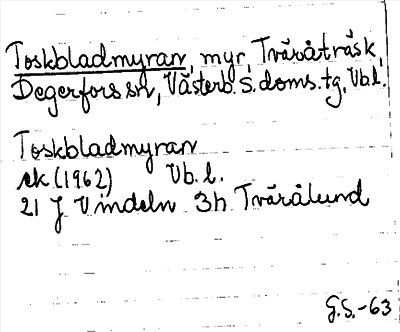 Toskbladmyran, myr, Tväråträsk,
Degerfors sn, Västerb. s. doms. tg, Vb.l.
Toskbladmyran
ek (1962) Vb. l.
21 J Vindeln 3h Tvärålund
G.S.-63